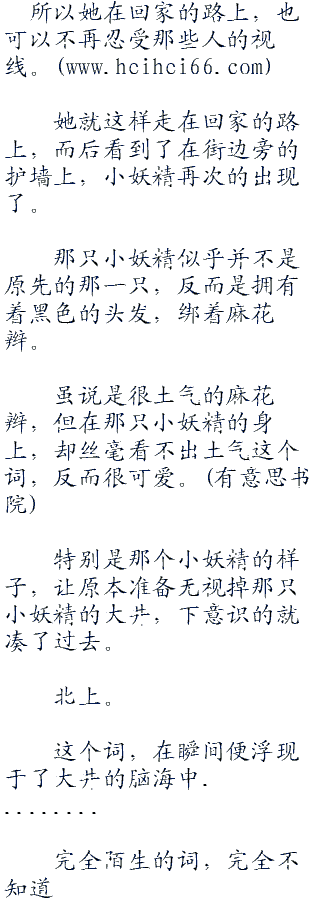 所以她在回家的路上，也
可以不再忍受那些人的视
线。(www.hcihci66.com)
她就这样走在回家的路
上，而后看到了在街边旁的
护墙上，小妖精再次的出现
了。
那只小妖精似乎并不是
原先的那一只，反而是拥有
着黑色的头发，绑着麻花
辫。
虽说是很土气的麻花
辫，但在那只小妖精的身
上，却丝毫看不出土气这个
词，反而很可爱。(有意思书
院)
特别是那个小妖精的样
子，让原本准备无视掉那只
小妖精的大井，下意识的就
凑了过去。
北上。
这个词，在瞬间便浮现
于了大井的脑海中.
........
完全陌生的词，完全不
知道